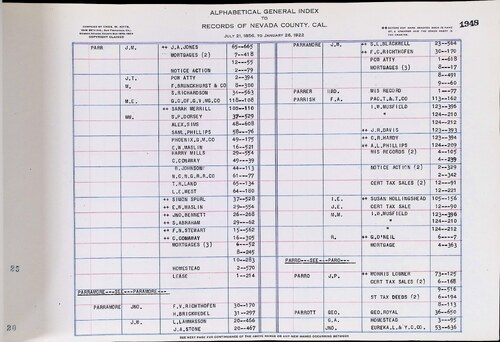 ALPHABETICAL GENERAL INDEX
TO
RECORDS OF NEVADA COUNTY, CAL.
JULY 21, 1856, TO JANUARY 28, 1922
COPYRIGHT CLAIMED
1949
PARR J.M. ++ J.A.JONES 65--665
MORTGAGES (2) 7--418
12---55
NOTICE ACTION 2---79
J.T. POW ATTY 2--394
M. F.BRUNCKHURST & CO 8--300
S.RICHARDSON 31--563
M.E. G.C.OF G.V.MG.CO 118--108
++ SARAH MERRILL 100--410
WM. S.P.DORSEY 37--529
ALEX.RIUS 48--608
SAML.PHILLIPS 58---76
PHOENIX.G.M.CO 49--175
E.W.MASLIN 16--521
HARRY MILLS 29--554
C.CONAWAY 49---39
R.JOHNSON 44--113
N.C.N.G.R.R.CO 61---77
T.R.LAND 65--134
L.E.WEST 64--180
++ SIMON SPURL 37--528
++ E.W.MASLIN 29--554
++ JNO.BENNETT 26--268
++ S.ABRAHAM 29---62
++ F.N.STEWART 15--562
++ C.CONAWAY 16--305
MORTGAGES (3) 6---52
8--245
10--283
HOMESTEAD 2--570
LEASE 1--214
PARRAMORE---SEE---PARAMORE---
PARRAMORE JNO. F.V.RICHTHOFEN 30--170
H.BRICKWEDEL 31--297
J.W. L.LAHMAESON 20--466
J.A.STONE 20--467
PARRAMORE J.W. ++ S.L.BLACKWELL 23--564
++ F.C.RICHTHOFEN 30--170
POW ATTY 1--618
MORTGAGES (3) 8---17
8--491
9---60
PARRER GEO. MIS RECORD 1---77
PARRISH F.A. PAC.T.& T.CO 113--162
I.R.MUSFIELD 123--396
" 124--210
" 124--212
++ J.R.DAVIS 123--393
++ C.R.HARDY 123--394
++ A.L.PHILLIPS 124--209
MIS RECORDS (2) 4--105
4--239
NOTICE ACTION (2) 2--329
2--342
CERT TAX SALES (2) 12---91
12--221
I.E. ++ SUSAN HOLLINGSHEAD 105--156
J.E. CERT TAX SALE 12---90
M.M. I.R.MUSFIELD 123--396
" 124--210
" 124--212
R. ++ G.O'NEIL 6----7
MORTGAGE 4--363
PARRO---SEE---PARO---
PARRO J.P. ++ MORRIS LOBNER 73--125
CERT TAX SALES (2) 6--168
9--516
ST TAX DEEDS (2) 6--194
8--113
PARROTT GEO. GEO.ROYAL 36--650
G.A. HOMESTEAD 3---95
JNO. EUREKA.L.& Y.C.CO 53--636
SEE NEXT PAGE FOR CONTINUANCE OF THE ABOVE NAMES OR ANY NEW NAMES BEGINNING BETWEEN